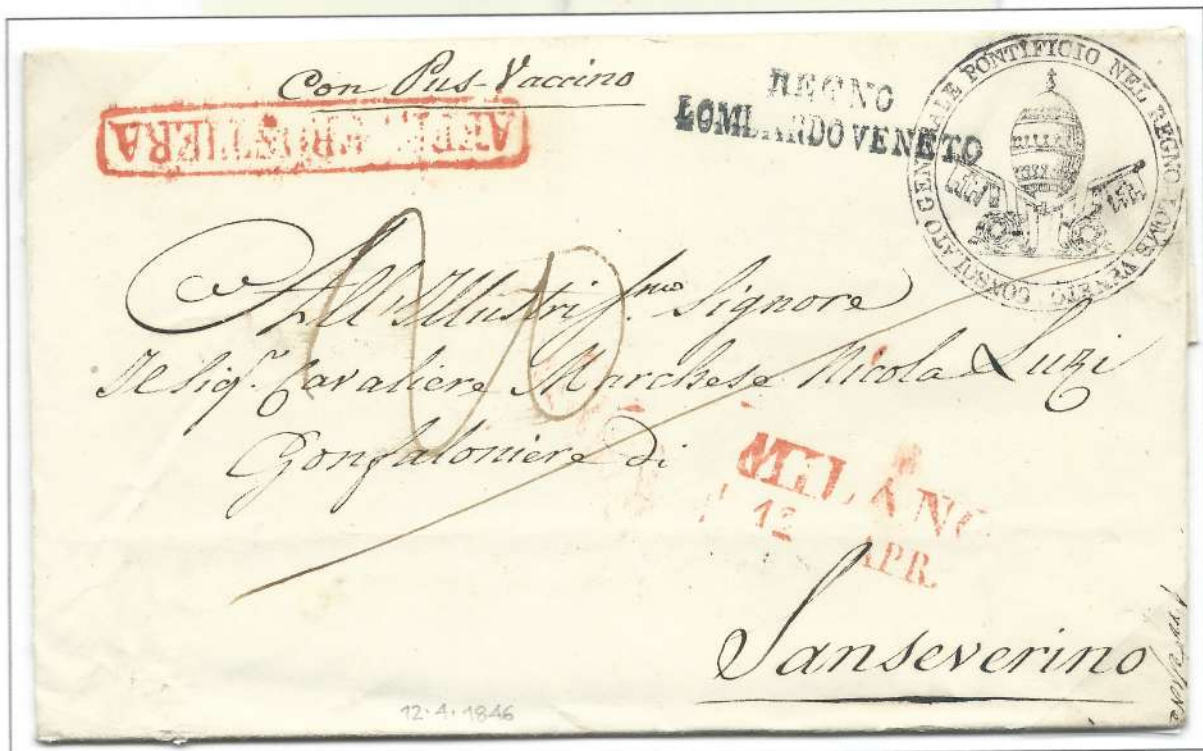 Con Pus-Vaccino
AFFR. FRONTIERA
REGNO
LOMBARDO VENETO
CONSOLATO GENERALE PONTIFICIO NEL REGNO LOMB. VENETO
All' Illustrissmo. Signore
Il Sigr. Cavaliere Marchese Nicola Luzi
Gonfaloniere di
MILANO
12 APR.
Sanseverino
12.4.1846